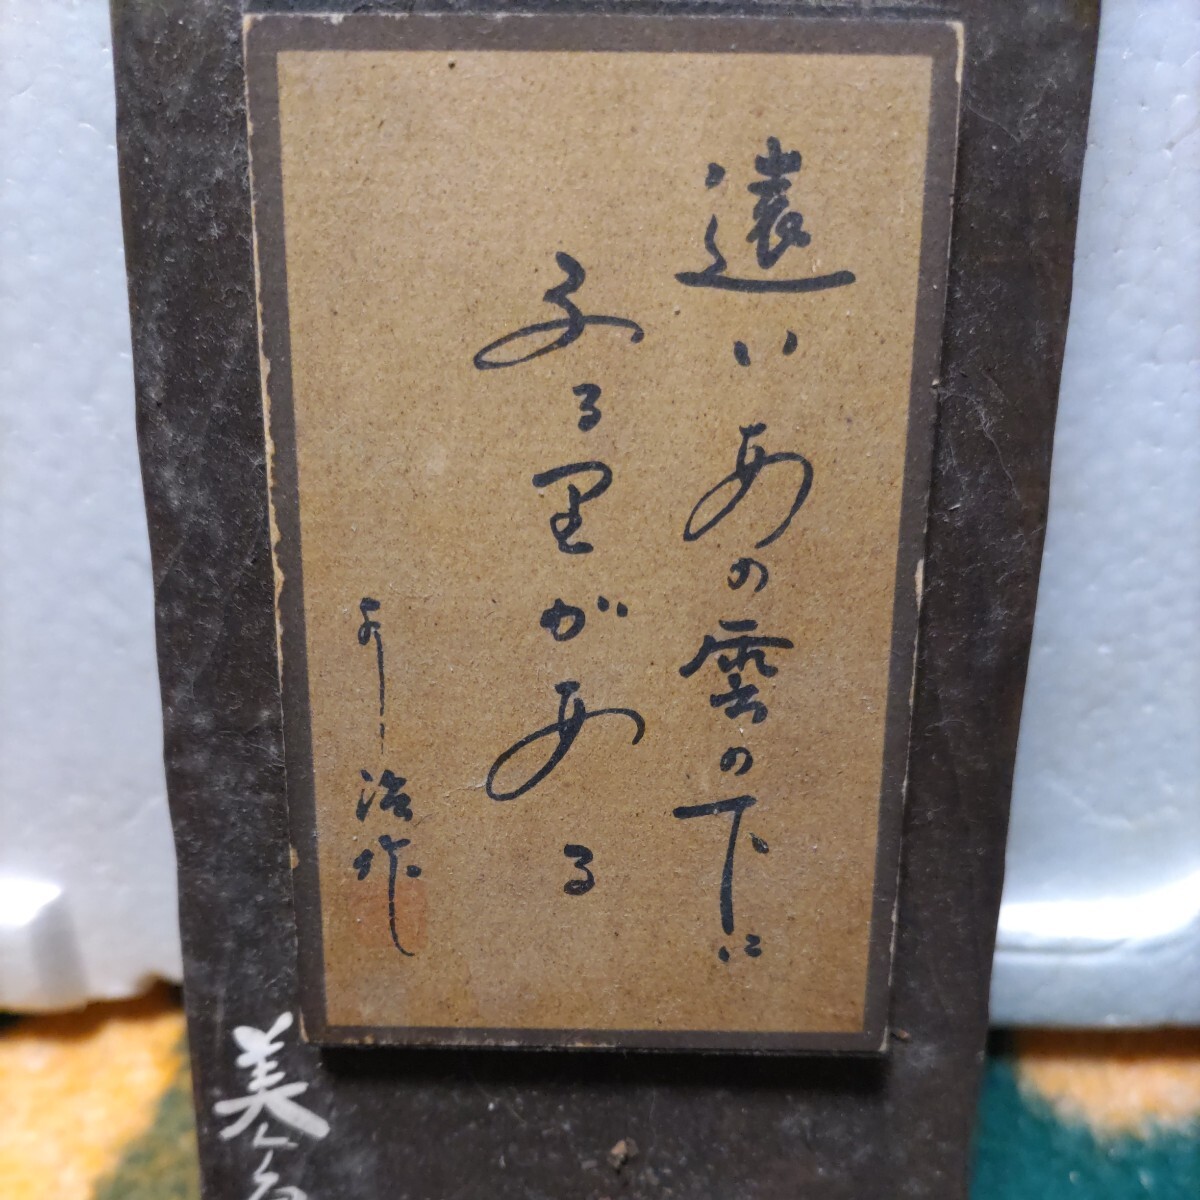 遠いあの雲の下に
ふる里がある
治作
美